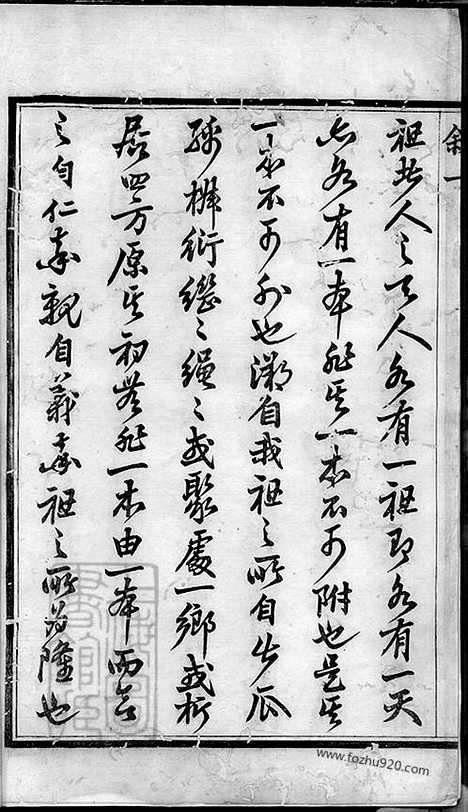 敘一
祖者人之天人各有一祖即各有一天
各有一本非其一本不可附也是其
一本不可外也溯自我祖之所自出瓜
綿椒衍繼〻繩〻或聚處一鄉或析
居四方原其初無非一本由一本而言
之自仁率親自義率祖之所為隆也
www.fozhu920.com